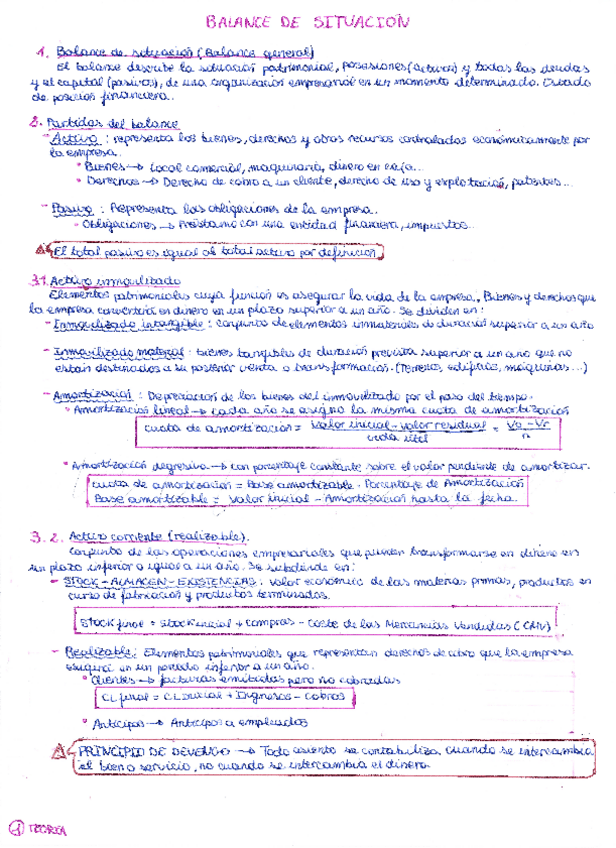 BALANCE DE SITUACIÓN
1. Balance de situación (Balance general)
El balance describe la situación patrimonial, posesiones (activos) y todas las deudas
y el capital (pasivos), de una organización empresarial en un momento determinado. Estado
de posición financiera.
2. Partidas del balance
- Activo : representa los bienes, derechos y otros recursos controlados económicamente por
la empresa.
• Bienes → Local comercial, maquinaria, dinero en caja...
• Derechos → Derecho de cobro a un cliente, derecho de uso y explotación, patentes...
- Pasivo : Representa las obligaciones de la empresa.
- Obligaciones → Préstamo con una entidad financiera, impuestos...
El total pasivo es igual al total activo por definición
3.1. Activo inmovilizado
Elementos patrimoniales cuya función es asegurar la vida de la empresa. Bienes y derechos que
la empresa convertirá en dinero en un plazo superior a un año. Se dividen en :
- Inmovilizado intangible : conjunto de elementos inmateriales de duración superior a un año
- Inmovilizado material : bienes tangibles de duración prevista superior a un año que no
están destinados a su posterior venta o transformación. (Terrenos, edificios, máquinas...)
- Amortización : Depreciación de los bienes del inmovilizado por el paso del tiempo.
• Amortización lineal → cada año se asigna la misma cuota de amortización
cuota de amortización = Valor inicial - valor residual / vida útil = Vo - Vr / n
• Amortización degresiva → con porcentaje constante sobre el valor pendiente de amortizar.
cuota de amortización = Base amortizable · Porcentaje de Amortización
Base amortizable = Valor inicial - Amortización hasta la fecha.
3.2. Activo corriente (realizable).
Conjunto de las operaciones empresariales que pueden transformarse en dinero en
un plazo inferior o igual a un año. Se subdivide en :
- STOCK - ALMACEN - EXISTENCIAS : valor económico de las materias primas, productos en
curso de fabricación y productos terminados.
Stock final = Stock inicial + compras - Coste de las Mercancías Vendidas (CMV)
- Realizable : Elementos patrimoniales que representan derechos de cobro que la empresa
en un periodo inferior a un año.
• Clientes → facturas emitidas pero no cobradas
CL final = CL inicial + Ingresos - cobros
• Anticipos → Anticipos a empleados
PRINCIPIO DE DEVENGO → Todo asiento se contabiliza cuando se intercambia
el bien o servicio, no cuando se intercambia el dinero.
1 TEORÍA